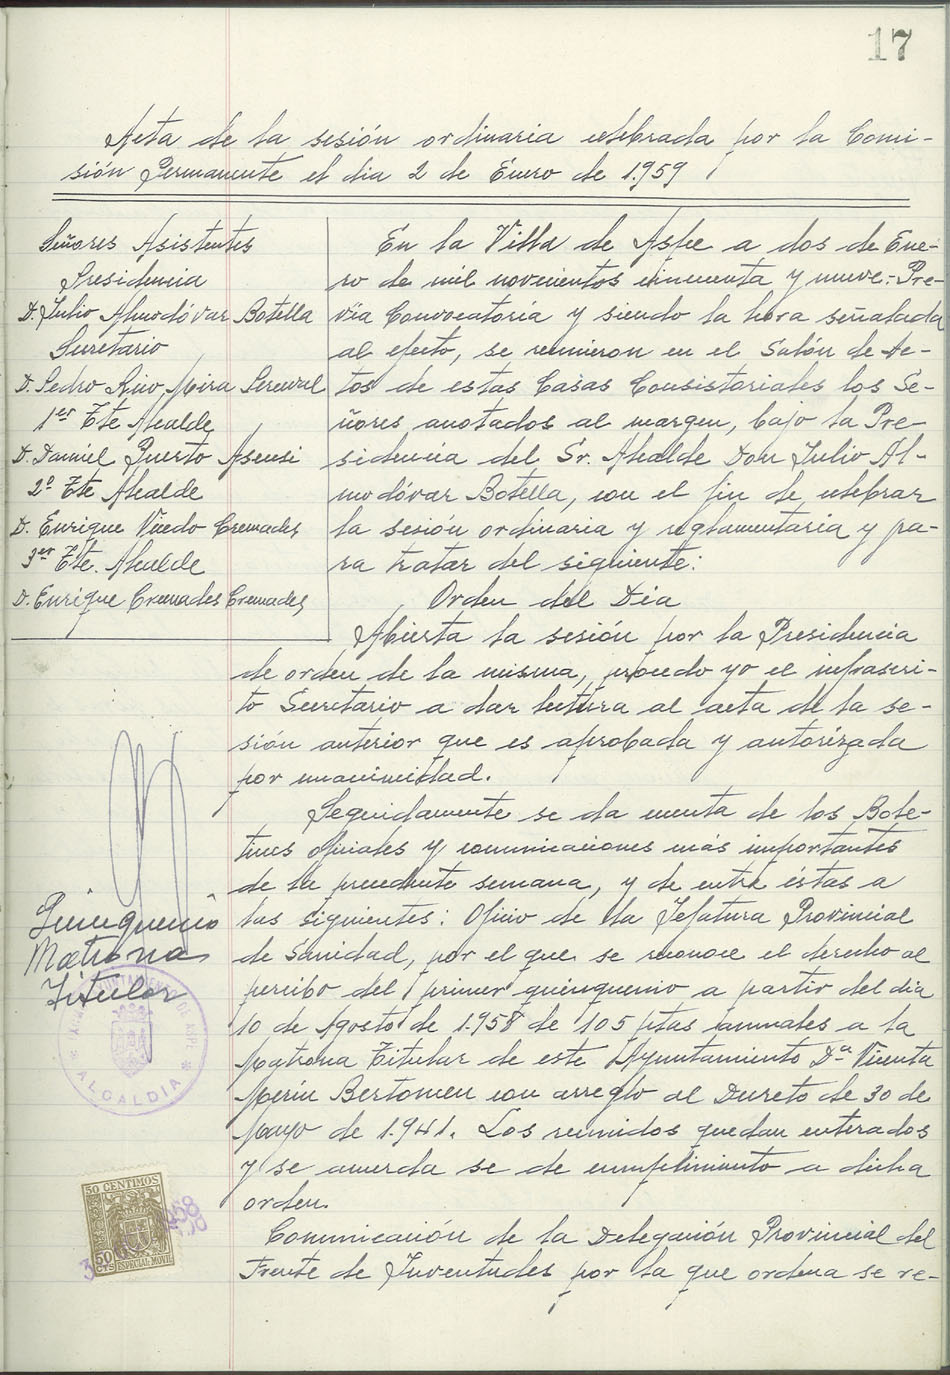 17
Acta de la sesión ordinaria celebrada por la Comi-
sión Permanente el dia 2 de Enero de 1.959
Señores Asistentes
Presidencia
D. Julio Almodóvar Botella
Secretario
D. Pedro Mira
1er Tte Alcalde
D. Daniel Puerto Asensi
2º Tte Alcalde
D. Enrique Vicedo Cremades
3er Tte. Alcalde
D. Enrique Cremades Cremades
En la Villa de Aspe a dos de Ene-
ro de mil novecientos cincuenta y nueve: Pre-
via Convocatoria y siendo la hora señalada
al efecto, se reunieron en el Salón de Ac-
tos de estas Casas Consistoriales los Se-
ñores anotados al margen, bajo la Pre-
sidencia del Sr. Alcalde Don Julio Al-
modóvar Botella, con el fin de celebrar
la sesión ordinaria y reglamentaria y pa-
ra tratar del siguiente:
Orden del Dia
Abierta la sesión por la Presidencia
de orden de la misma, procedo yo el infrascri-
to Secretario a dar lectura al acta de la se-
sión anterior que es aprobada y autorizada
por unanimidad.
Seguidamente se da cuenta de los Bole-
tines oficiales y comunicaciones más importantes
de la precedente semana, y de entre éstas a
las siguientes: Oficio de la Jefatura Provincial
de Sanidad, por el que se reconoce el derecho al
percibo del primer quinquenio a partir del dia
10 de Agosto de 1.958 de 105 ptas anuales a la
Matrona Titular de este Ayuntamiento Dª Vicenta
Merin Bertomeu con arreglo al Decreto de 30 de
Mayo de 1.941. Los reunidos quedan enterados
y se acuerda se de cumplimiento a dicha
orden.
Comunicación de la Delegación Provincial del
Frente de Juventudes por la que ordena se re-
Quinquenio
Matrona
Titular
AYUNTAMIENTO DE ASPE
* ALCALDIA *
50 CENTIMOS
50
CTS ESPECIAL MOVIL